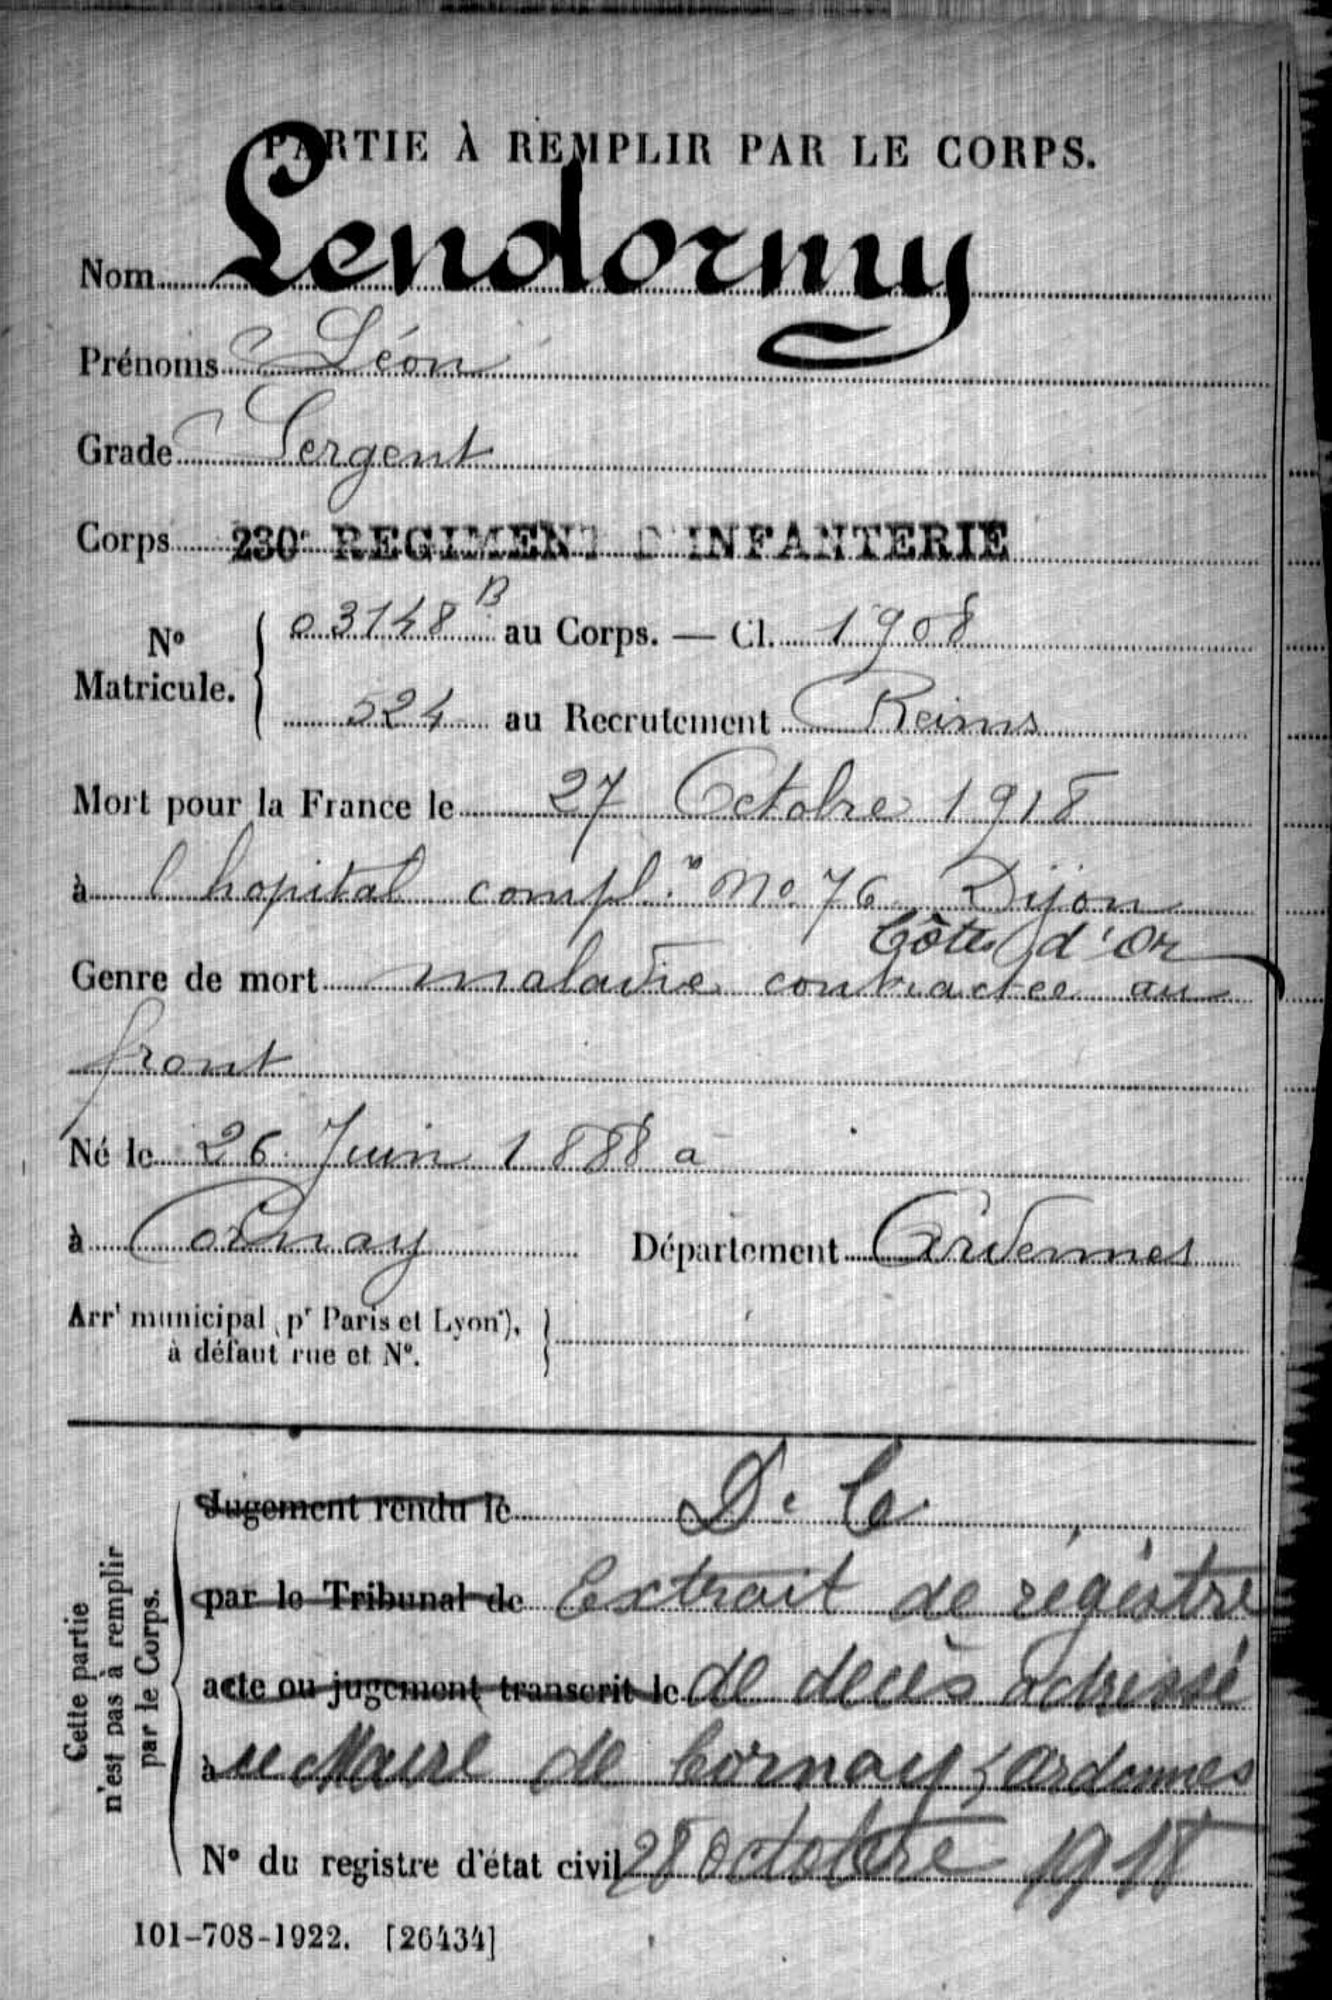 PARTIE À REMPLIR PAR LE CORPS.
Nom Lendormy
Prénoms Léon
Grade Sergent
Corps 230e REGIMENT D'INFANTERIE
N° Matricule.
03148 B au Corps. — Cl. 1908
524 au Recrutement Reims
Mort pour la France le 27 Octobre 1918
à l'hopital compl. re No 76 Dijon
Côte d'Or
Genre de mort maladie contractée au
front
Né le 26 Juin 1888 a
à Cornay Département Ardennes
Arrt municipal (pr Paris et Lyon),
à défaut rue et N°.
Cette partie
n'est pas à remplir
par le Corps.
Jugement rendu le D. C.
par le Tribunal de Extrait de registre
acte ou jugement transcrit le de décès adressé
à Maire de Cornay (Ardennes
N° du registre d'état civil 28 octobre 1918
101-708-1922. [26434]